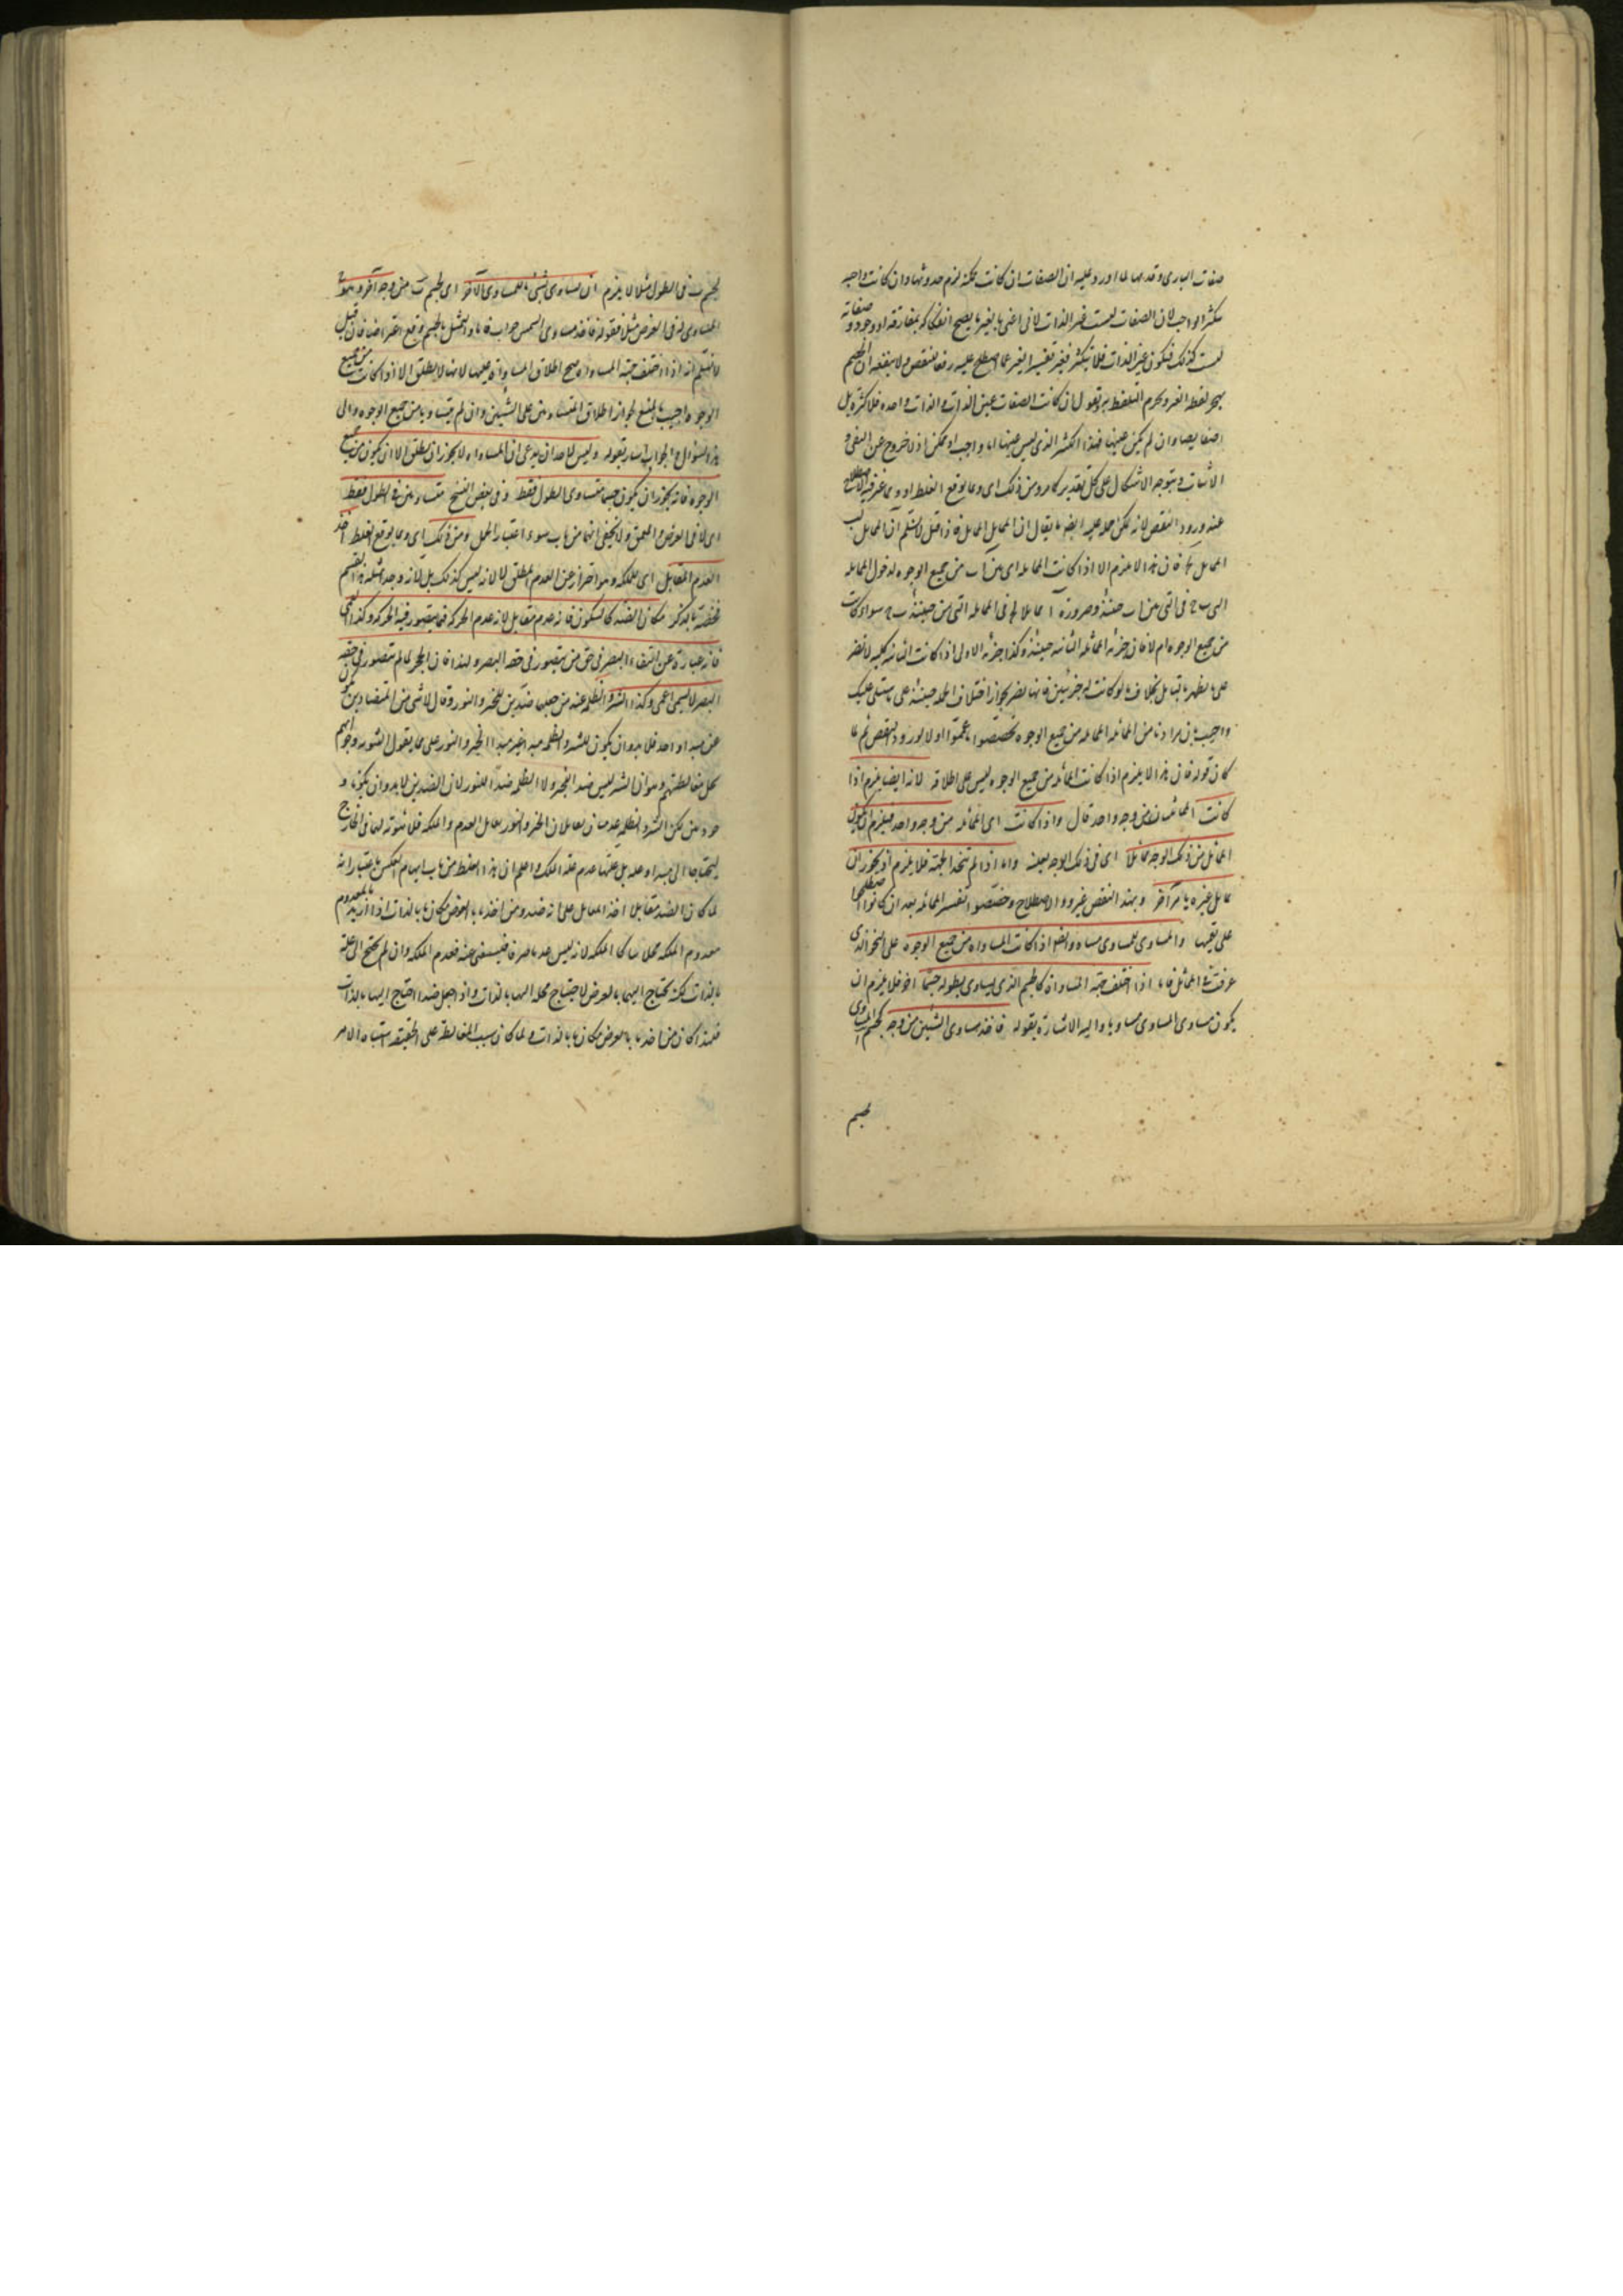 صفات البارى وقدمها لما اورد عليه ان الصفات ان كانت ممكنة لزم حدوثها وان كانت واجبه
تكثر الواجب لان الصفات ليست غير الذات لانى اعنى بالغير ما يصح انفكاكه بمفارقة او وجود و صفاته
ليست كذلك فيكون عين الذات فلا تكثر فغير تفسير الغير عما اصطلح عليه رفعا للنقض ولا ينفعه ان الخصم
يهجر لفظ الغير ويحرم التلفظ به ويقول ان كانت الصفات عين الذات والذات واحده فلا كثرة بل
وان لم يكن عينها فهذا الكثير الذى ليس عينها اما واجب او ممكن اذ لا خروج عن النفى و
الاثبات ويتوجه الاشكال على كل تقدير كما مر ومن ذلك اى ومما يوقع الغلط
عند ورود النقض لانه يمكن ايضا ما يقال ان المماثل المماثل فاذا قيل لا نسلم ان المماثل لب
المماثل لج فان هذا لا يلزم الا اذا كانت المماثله اى بين ا ب من جميع الوجوه لدخول المماثله
التى ب ج فى التى بين ا ب حينئذ وصرورة ا مماثلا لج فى المماثله التى بين حينئذ ب ج سواء كانت
من جميع الوجوه ام لا فان جزئه المماثله الثانيه حينئذ وكذا جزئه الاولى اذا كانت الثانيه كليه لا تضر
على ما يظهر بالتامل بخلاف ما لو كانت جزئيتين فانها تضر لجواز اختلاف الجهة حينئذ على ما ستلى عليك
واجيب بان مرادنا من المماثله المماثله من جميع الوجوه تخصصوا ما عمموا اولا لورود النقض ثم لما
كان قوله فان هذا لا يلزم اذا كانت المماثله من جميع الوجوه ليس على اطلاقه لانه ايضا يلزم اذا
كانت المماثلتان من وجه واحد قال واذا كانت اى المماثله من وجه واحد فيلزم ان يكون
المماثل من ذلك الوجه مماثلا اى فى ذلك الوجه بعينه واما اذا لم تتحد الجهة فلا يلزم اذ يجوز ان
يماثل غيره بامر آخر وبهذا النقض غيروا الاصطلاح وخصصوا تفسير المماثله بعد ان كانوا اصطلحوا
على تعميمها والمساوى للمساوى مساو وايضا اذا كانت المساواه من جميع الوجوه على النحو الذى
عرفت فى المماثل فاما اذا اختلف جهة المساواة كالجسم الذى يساوى بطوله جسما آخر فلا يلزم ان
يكون مساوى المساوى مساويا واليه الاشارة بقوله فاخذ مساوى الشيئين من وجه كجسم المساوى
لجسم
لجسم ب فى الطول مثلا لا يلزم ان يساوى الشىء المساوى الآخر اى لجسم ب من وجه آخر وهو ج
المساوى له فى العرض مثلا فقوله فاخذ مساوى الشىء جواب فاما والتمثيل بالجسم وقع اعتراضا فان قيل
لا نسلم انه اذا اختلف جهة المساواة صح اطلاق المساواة عليهما لانها لا يطلق الا اذا كانت من جميع
الوجوه اجيب بالمنع لجواز اطلاق المتساويين على الشيئين وان لم يتساويا من جميع الوجوه والى
هذا السؤال والجواب اشار بقوله وليس لاحد ان يدعى ان المساواه لا يجوز ان يطلق الا ان يكون من جميع
الوجوه فانه يجوز ان يكون جسما متساوى الطول فقط وفى بعض النسخ متساويين فى الطول فقط
اى لا فى العرض والعمق ولا يخفى انها من باب سوء اعتبار الحمل ومن ذلك اى ومما يوقع الغلط اخذ
العدم المقابل اى للملكه وهو احتراز عن العدم المطلق لا لانه ليس كذلك بل لانه
مكان الضد كالسكون فانه عدم مقابل لانه عدم الحركه فيما يتصور فيه الحركه وكذا العمى
فانه عبارة عن انتفاء البصر فى حق من يتصور فى حقه البصر ولهذا فان الحجر لما لم يتصور فى حقه
البصر لا يسمى اعمى وكذا الشر والظلمه عند من جعلهما ضدين للخير والنور وقال لا شى من المتضادين
عن مبدا واحد فلا بد وان يكون للشر والظلمه مبدا غير مبدا الخير والنور على ما يقول الثنويه وجوابهم
محل مغالطتهم وهو ان الشر ليس ضدا للخير ولا الظلمه ضدا للنور لان الضدين لا بد وان يكونا و
جوديين لكن الشر والظلمه عدميان يقابلان الخير والنور تقابل العدم والملكه فلا ثبوت لهما فى الخارج
ليحتاجا الى مبدا وعله بل علتهما عدم علة الملكه واعلم ان هذا الغلط من باب ايهام العكس باعتبار انه
لما كان الضد مقابلا اخذ المقابل على انه ضد ومن اخذ ما بالعرض مكان ما بالذات اذا اريد بالمعدوم
معدوم الملكه لانه ليس عدما صرفا فيستغنى عنه فعدم الملكه وان لم يحتج الى علة
بالذات لكنه يحتاج اليها بالعرض لاحتياج محله اليها بالذات واذا جعل ضدا احتاج اليها بالذات
فلهذا كان من اخذ ما بالعرض مكان ما بالذات ولما كان سبب المغالطه على الحقيقه اشتباه الامر